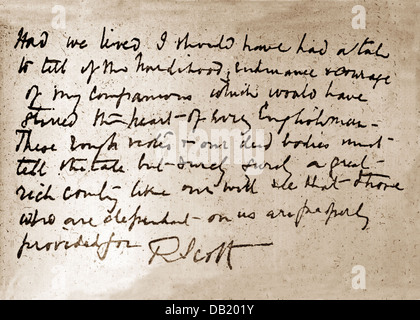 Had we lived I should have had a tale
to tell of the hardihood, endurance & courage
of my companions which would have
stirred the heart of every Englishman -
These rough notes & our dead bodies must
tell the tale but surely surely a great
rich country like ours will see that those
who are dependent on us are properly
provided for
R Scott
alamy
Image ID: DB201Y
www.alamy.com